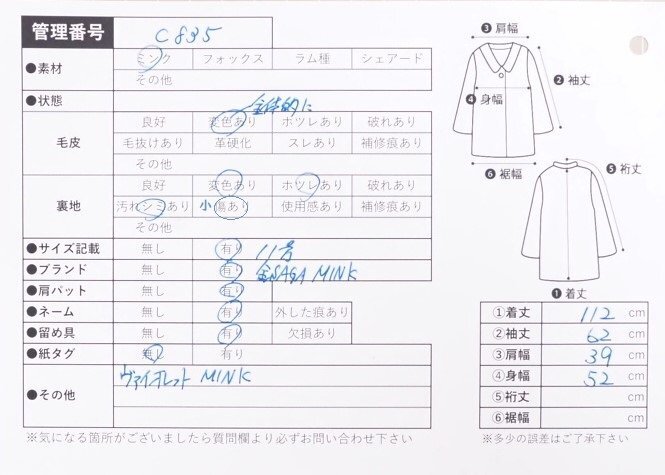 管理番号 C835
●素材 ミンク フォックス ラム種 シェアード
その他
●状態 全体的に
毛皮 良好 変色あり ホツレあり 破れあり
毛抜けあり 革硬化 スレあり 補修痕あり
その他
裏地 良好 変色あり ホツレあり 破れあり
汚れシミあり 小 傷あり 使用感あり 補修痕あり
その他
●サイズ記載 無し 有り 11号
●ブランド 無し 有り 金SAGA MINK
●肩パット 無し 有り
●ネーム 無し 有り 外した痕あり
●留め具 無し 有り 欠損あり
●紙タグ 無し 有り
●その他 ヴァイオレット MINK
※気になる箇所がございましたら質問欄より必ずお問い合わせ下さい
❸肩幅
❷袖丈
❹身幅
❻裾幅
❺裄丈
❶着丈
①着丈 112 cm
②袖丈 62 cm
③肩幅 39 cm
④身幅 52 cm
⑤裄丈 cm
⑥裾幅 cm
※多少の誤差はご了承下さい